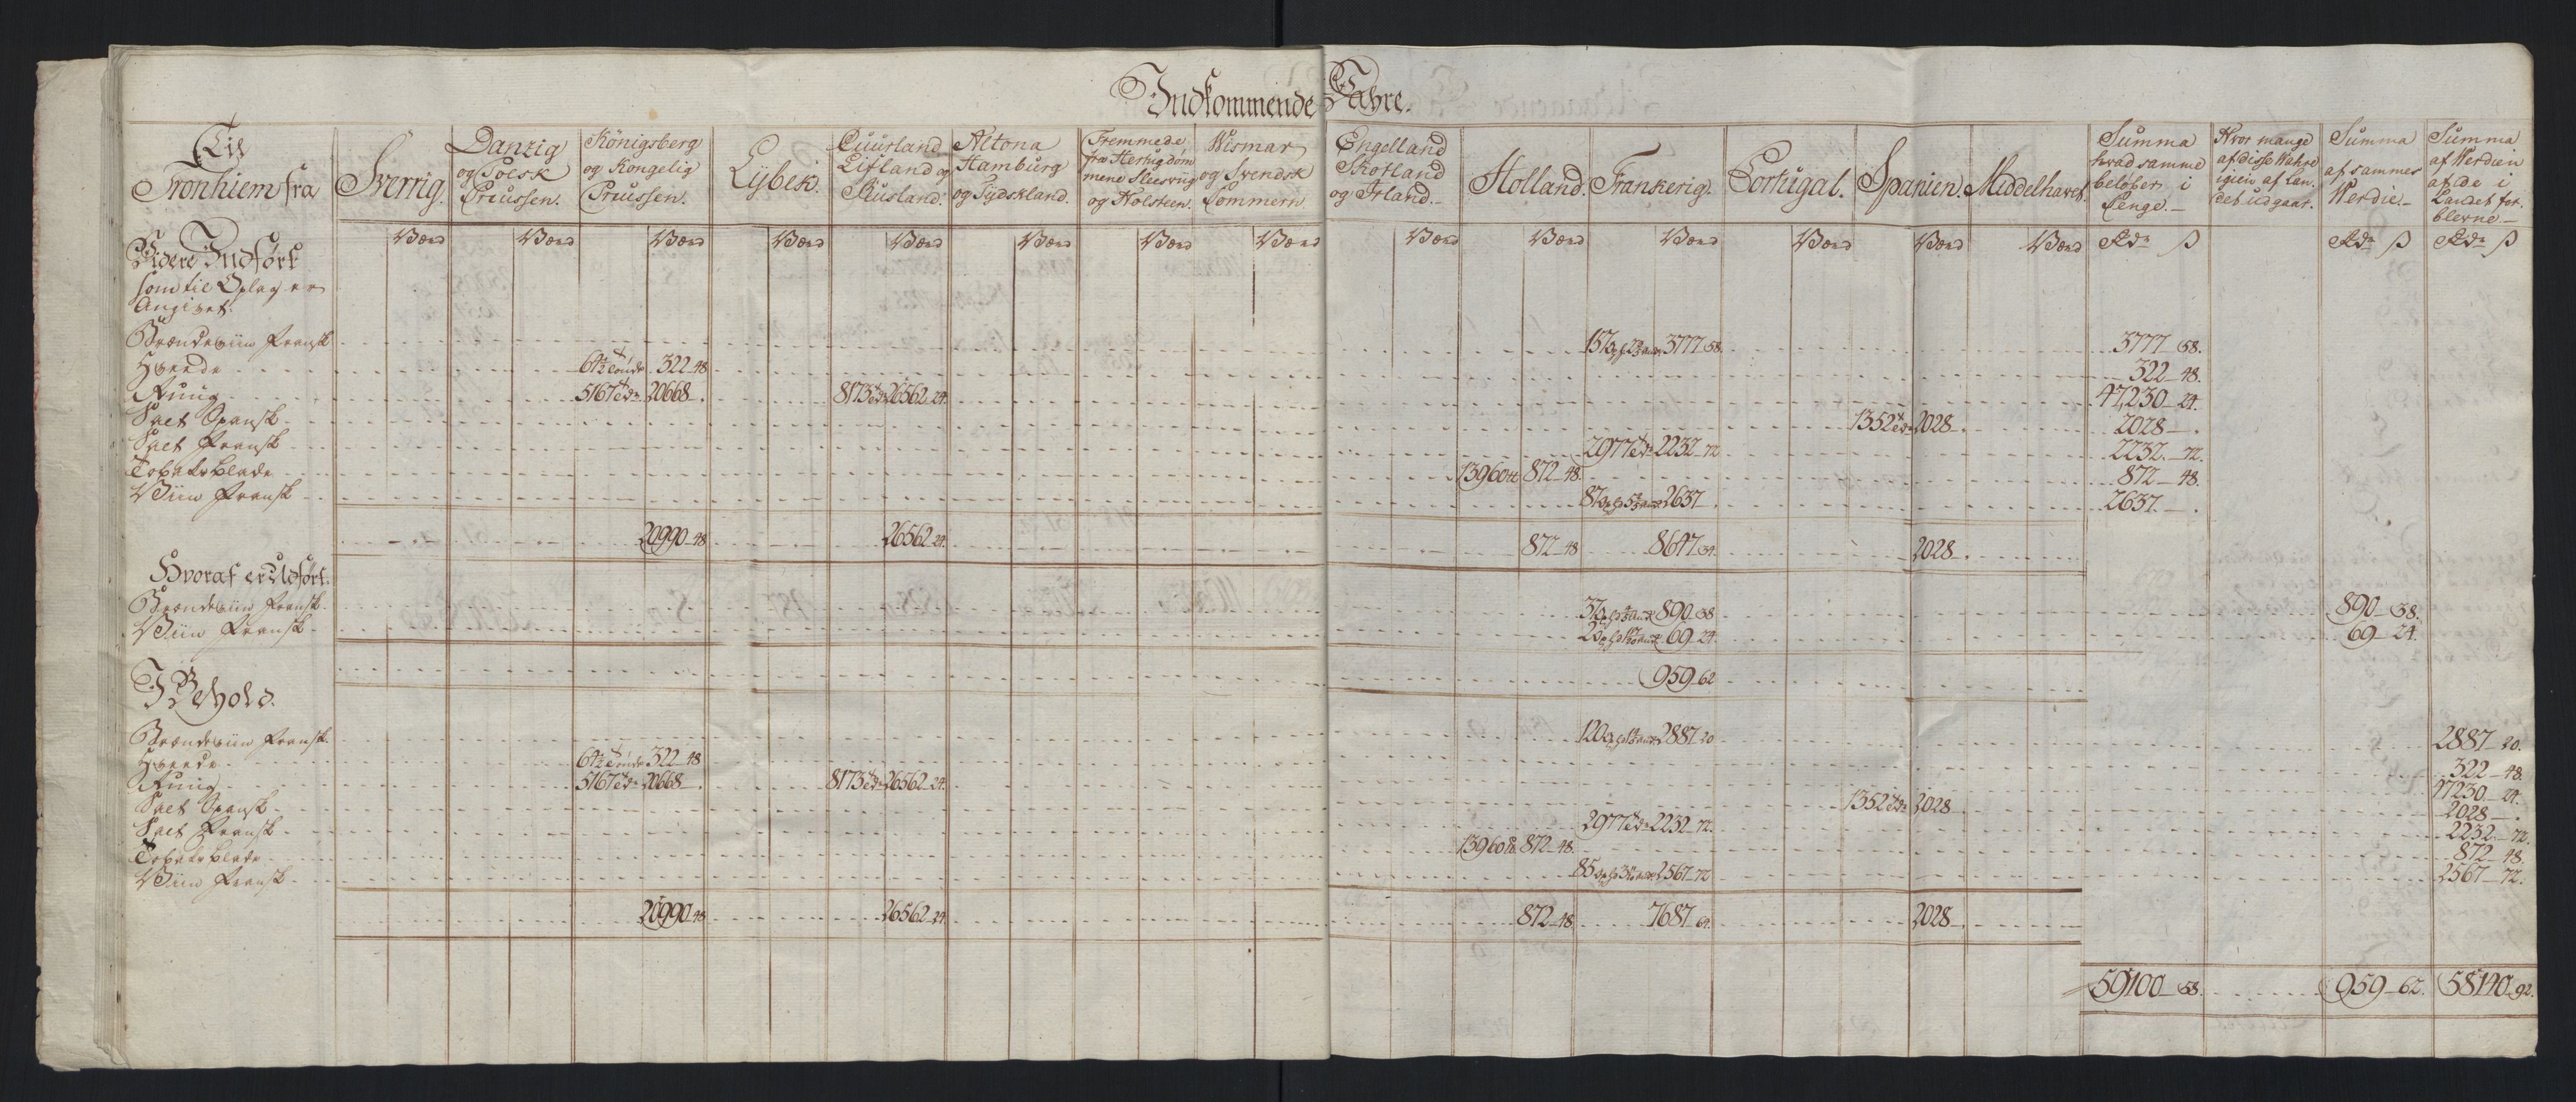 Indkommende Vahre.
Til Tronhiem fra | Sverrig. | Danzig og Poesk Preussen. | Königsberg og Kongelig Preussen. | Lybek. | Cuurland Lifland og Rusland. | Altona Hamburg og Tydskland. | Fremmede fra Hertugdommene Sleesvig og Holsteen. | Wismar og Svendsk Pommern | Engelland Skotland og Irland. | Holland. | Frankerig. | Portugal. | Spanien. | Middelhavet. | Summa hvad samme beløber i Penge. | Hvor mange af disse Wahre igien af Landet udgaar. | Summa af sammes Werdie. | Summa af Werdien af de i Landet forblevne
Værd | Værd | Værd | Værd | Værd | Værd | Værd | Værd | Værd | Værd | Værd | Værd | Værd | Værd | Rdr ß | Rdr ß | Rdr ß
Videre Indført
som til Oplag er
Angivet.
Brændeviin Fransk 3777 58. 3777 58.
Hvede 64½ Tönder 322 48 322 48.
Ruug 5167 tdr 20668 . 8173 tdr 26562 24. 47230 24.
Salt Spansk 1352 tdr 2028 . 2028 .
Salt Fransk 2977 tdr 2232 72 2232 72.
Tobaksblade 13960 872 48. 872 48.
Viin Fransk 2637 . 2637 .
20990 48 26562 24. 872 48 8647 34. 2028 .
Hvoraf er Udført.
Brændeviin Fransk 890 38 890 38.
Viin Fransk 69 24 69 24.
959 62
I Behold.
Brændeviin Fransk 2887 20 2887 20.
Hvede 64½ Tönder 322 48 322 48.
Ruug 5167 tdr 20668 . 8173 tdr 26562 24. 47230 24.
Salt Spansk 1352 tdr 2028 2028 .
Salt Fransk 2977 tdr 2232 72. 2232 72.
Tobaksblade 13960 872 48. 872 48.
Viin Fransk 2567 72 2567 72.
20990 48 26562 24. 872 48 7687 64. 2028 .
59100 58. 959 62. 58140 92.